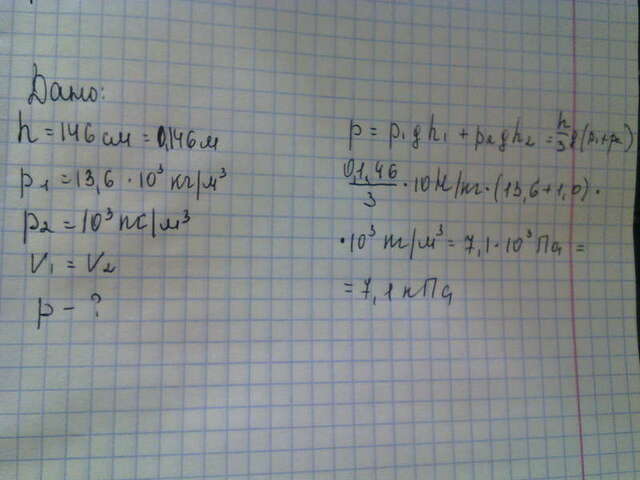 Дано:
h = 146 см = 0,146 м
p₁ = 13,6 · 10³ кг/м³
p₂ = 10³ кг/м³
V₁ = V₂
p - ?
p = p₁gh₁ + p₂gh₂ = h/3 g(p₁+p₂)
01,46/3 · 10 Н/кг · (13,6 + 1,0) ·
· 10³ кг/м³ = 7,1 · 10³ Па =
= 7,1 кПа